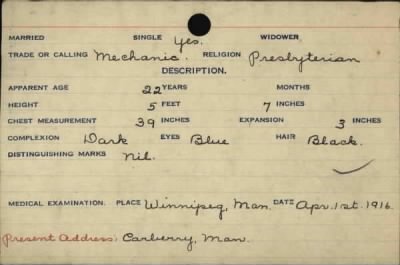 MARRIED SINGLE Yes. WIDOWER
TRADE OR CALLING Mechanic. RELIGION Presbyterian
DESCRIPTION.
APPARENT AGE 22 YEARS MONTHS
HEIGHT 5 FEET 7 INCHES
CHEST MEASUREMENT 39 INCHES EXPANSION 3 INCHES
COMPLEXION Dark EYES Blue HAIR Black.
DISTINGUISHING MARKS Nil.
MEDICAL EXAMINATION. PLACE Winnipeg, Man. DATE Apr. 1st. 1916.
Present Address: Carberry, Man.